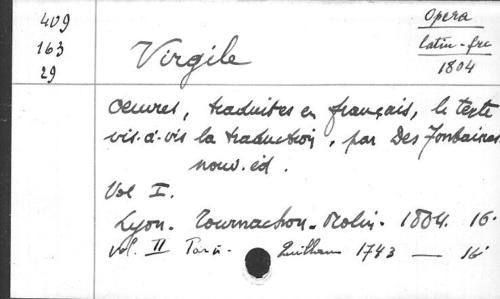 409
163
29
Virgile
Opera
latin-frç
1804
Oeuvres, traduites en français, le texte
vis-à-vis la traduction, par Des Fontaines.
nouv. éd.
Vol I.
Lyon. Tournachon-Molin. 1804. 16°
Vol. II Paris. Quillau 1743 — 16°